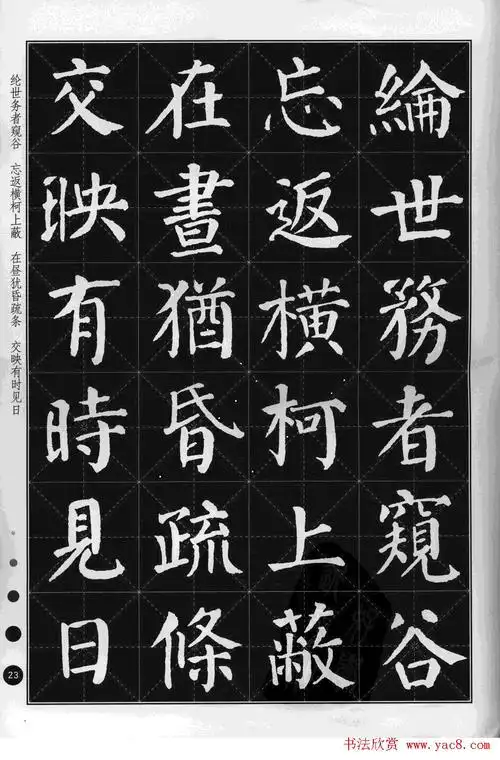 綸世務者窺谷
忘返橫柯上蔽
在晝猶昏疏條
交映有時見日
纶世务者窥谷　忘返横柯上蔽　在昼犹昏疏条　交映有时见日
23
书法欣赏 www.yac8.com